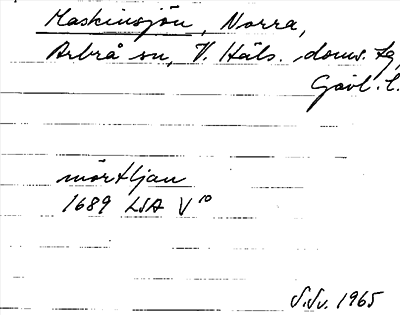 Maskinsjön, Norra,
Arbrå sn, V. Häls. doms. tg,
Gävl. l.
mörttjan
1689 LSA V 10
S.Sv. 1965